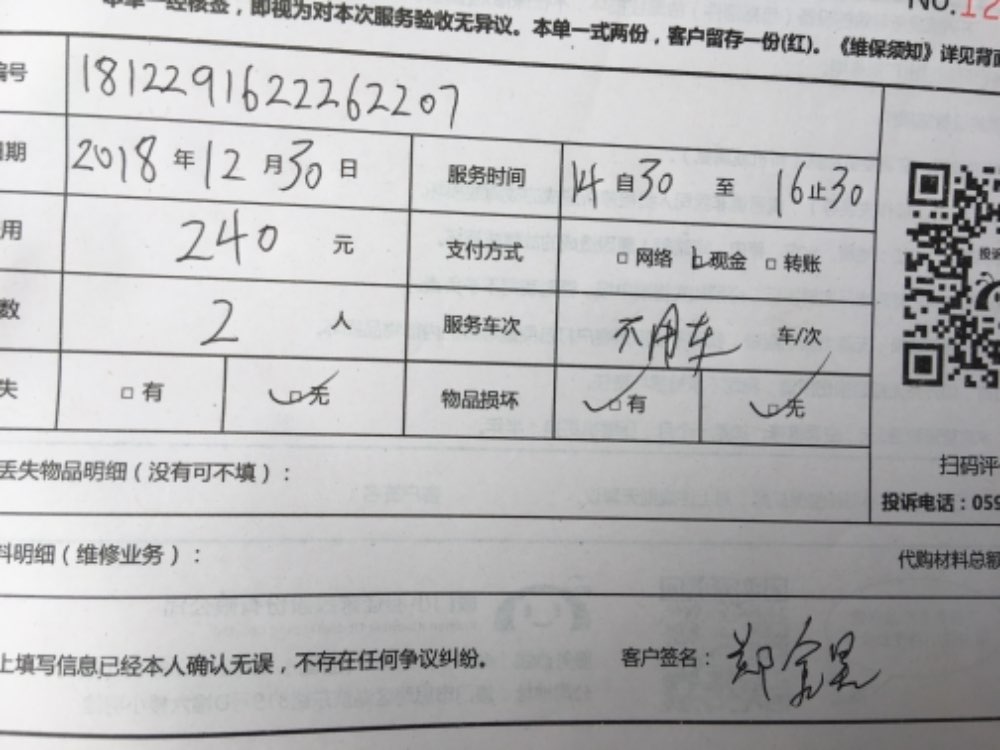 No.12
单一经核签，即视为对本次服务验收无异议。本单一式两份，客户留存一份(红)。《维保须知》详见背面
编号 1812291622262207
日期 2018年12月30日 服务时间 14自30至16止30
用 240元 支付方式 □网络 □现金 □转账
数 2人 服务车次 不用车 车/次
失 □有 □无 物品损坏 □有 □无
丢失物品明细（没有可不填）：
扫码评
投诉电话：059
料明细（维修业务）： 代购材料总额
上填写信息已经本人确认无误，不存在任何争议纠纷。 客户签名：郑